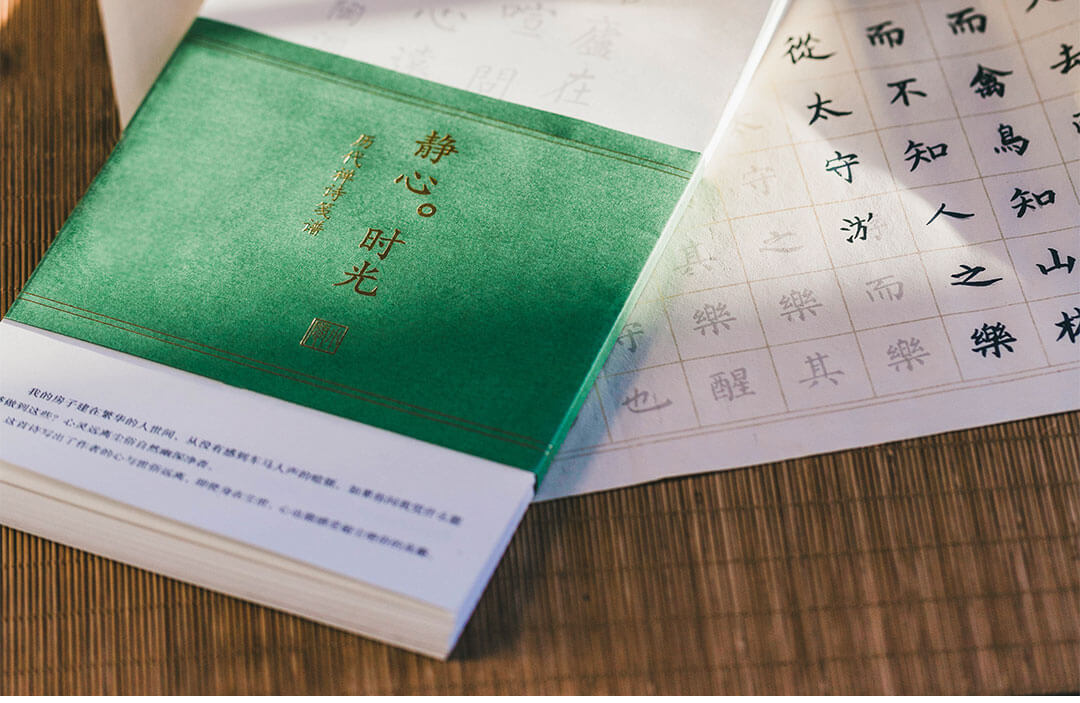 静心。时光
历代禅诗笺谱
我的房子建在繁华的人世间,从没有感到车马人声的喧嚣。如果你问我凭什么能
够做到这些?心灵远离尘俗自然幽深净香。
这首诗写出了作者的心与世俗远离,即使身在尘世,心也能感受
廬在
喧問
心遠
陶
去
而禽鳥知山林
而不知人之樂
從太守游而樂
守之樂其
其樂醒
也